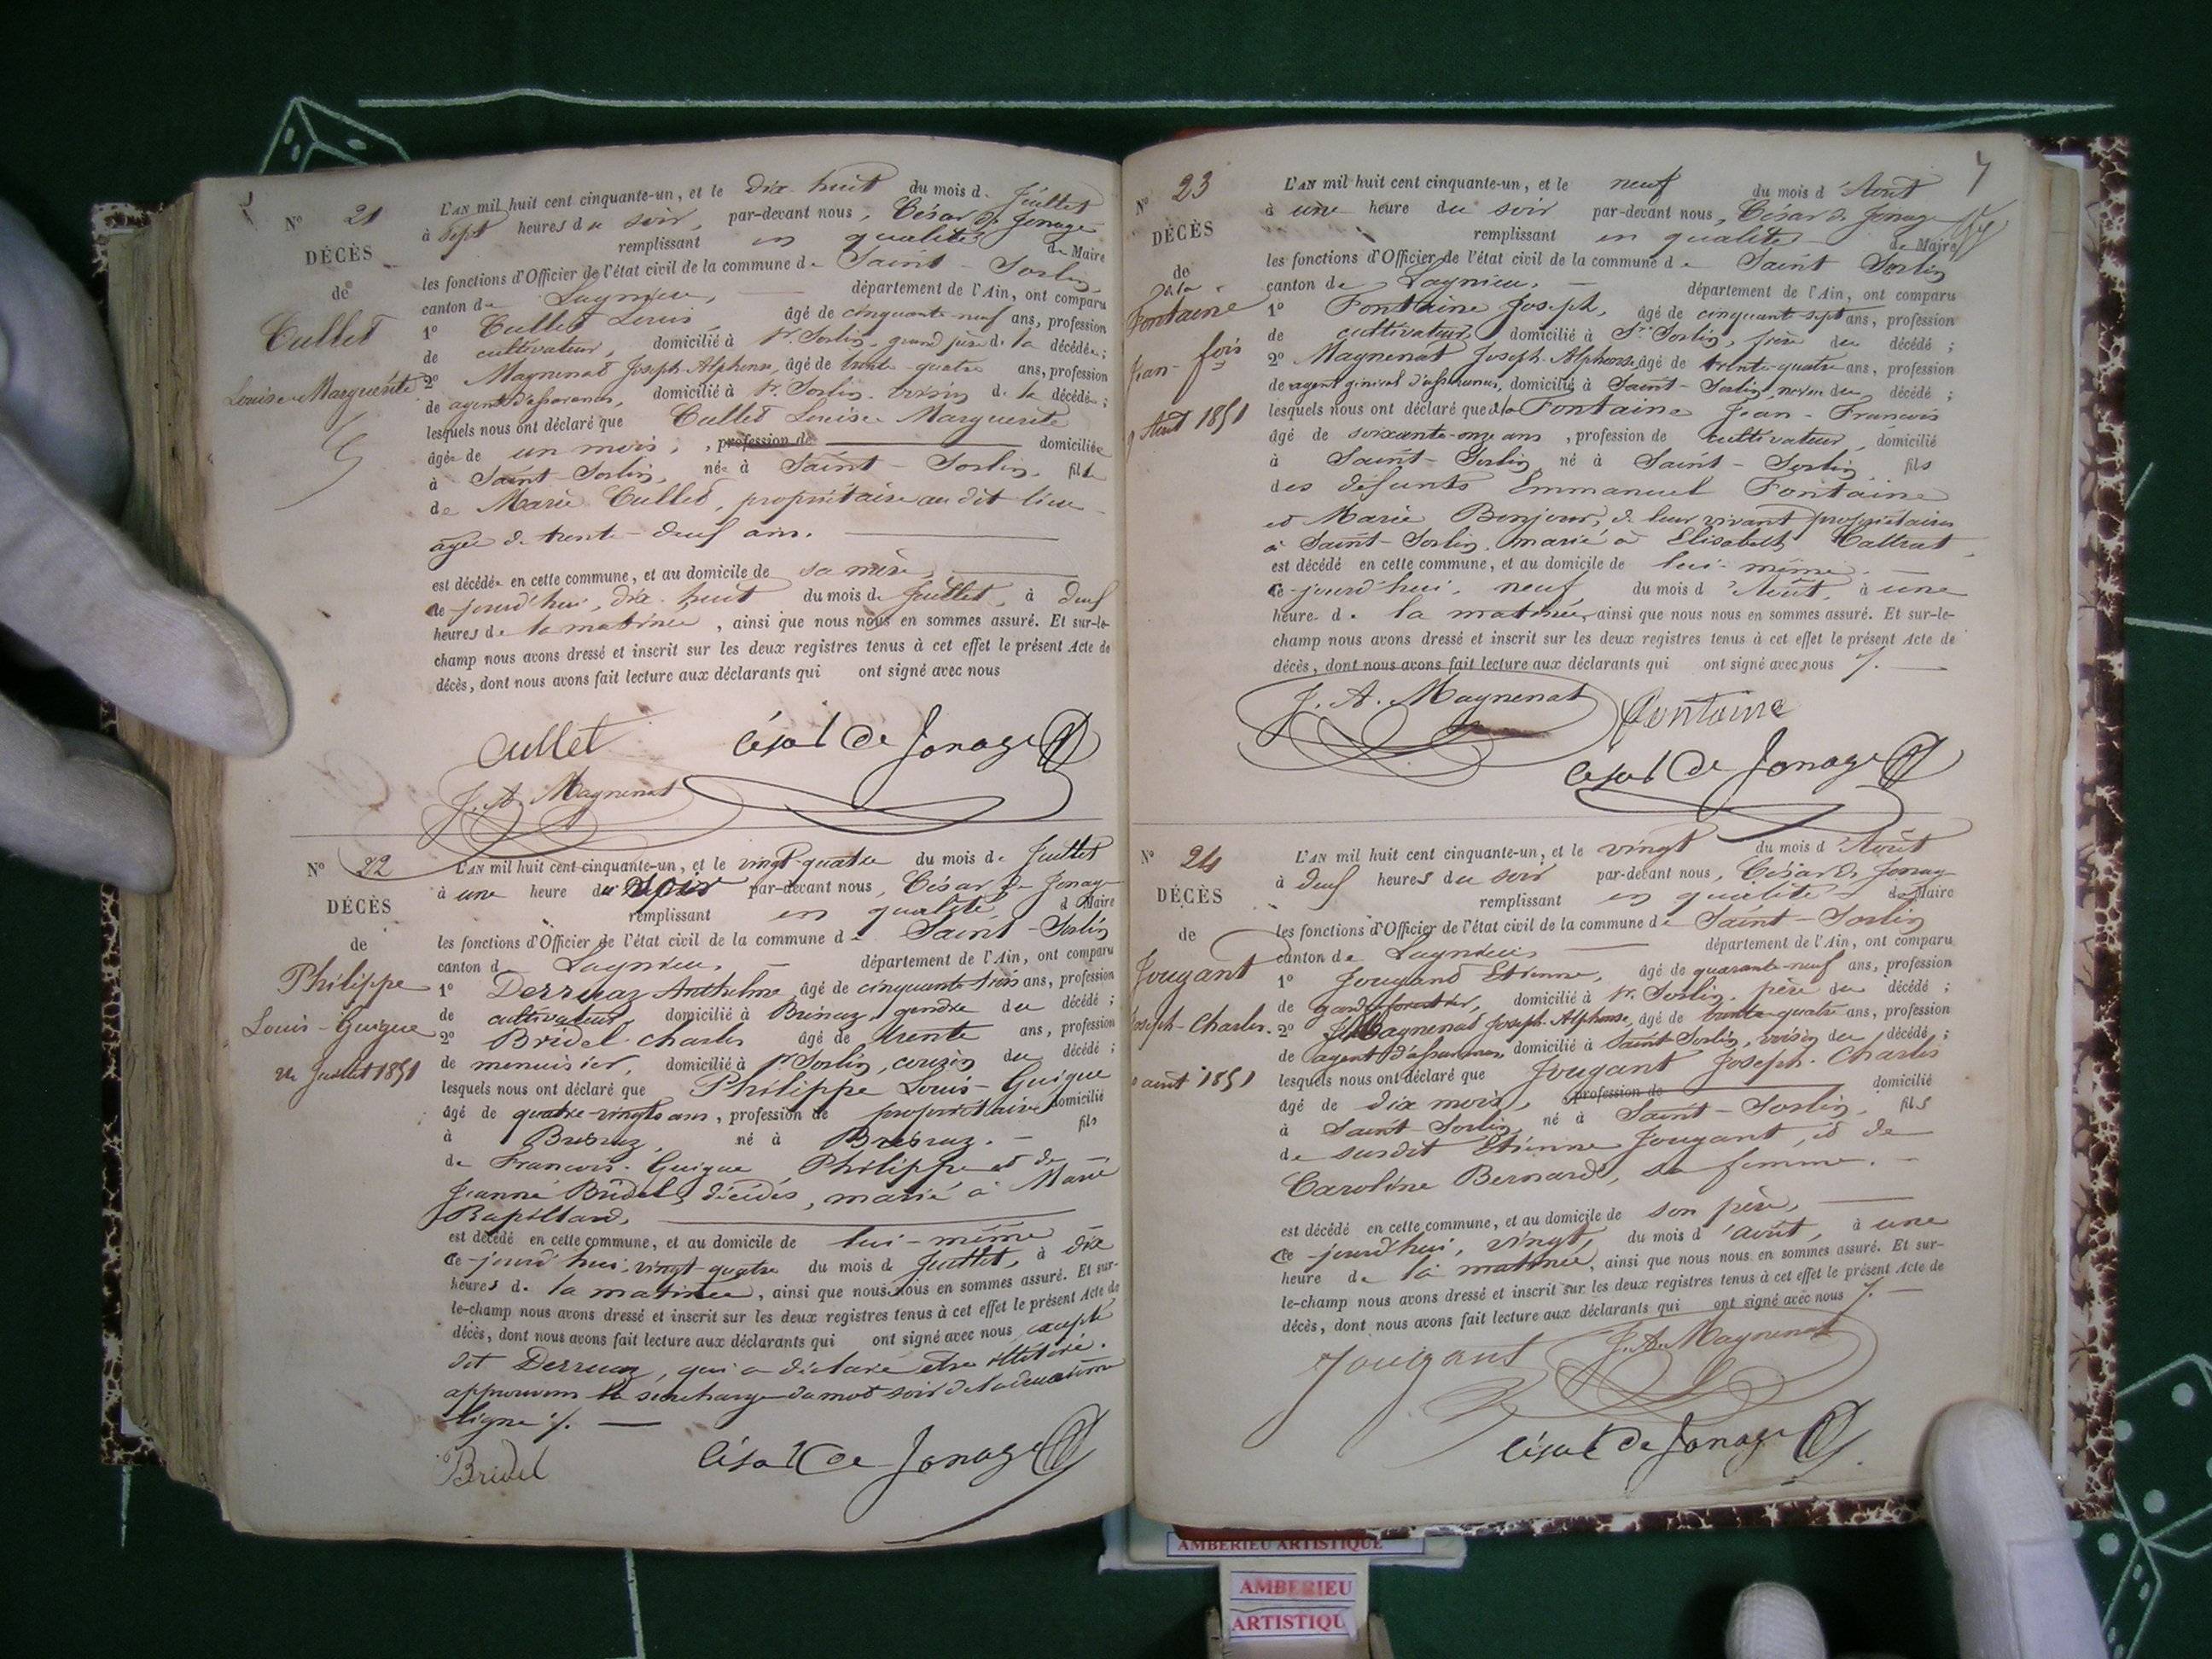 N° 21
DÉCÈS
de
Cullet
Louise Marguerite
L'AN mil huit cent cinquante-un, et le dix huit du mois d. Juillet
à sept heures du soir, par-devant nous, César de Jonage
remplissant en qualité de Maire
les fonctions d'Officier de l'état civil de la commune de Saint-Sorlin
canton de Lagnieu, département de l'Ain, ont comparu
1° Cullet Louis, âgé de cinquante-neuf ans, profession
de cultivateur, domicilié à St. Sorlin, grand père de la décédée;
2° Magnenat Joseph Alphonse, âgé de trente-quatre ans, profession
de agent d'assurances, domicilié à St. Sorlin, voisin de la décédée;
lesquels nous ont déclaré que Cullet Louise Marguerite
âgée de un mois, profession de domiciliée
à Saint-Sorlin, née à Saint-Sorlin, fille
de Marie Cullet, propriétaire au dit lieu
agée de trente-deux ans.
est décédée en cette commune, et au domicile de sa mère,
ce-jourd'hui, dix-huit du mois de Juillet, à deux
heures de la matinée, ainsi que nous nous en sommes assuré. Et sur-le-
champ nous avons dressé et inscrit sur les deux registres tenus à cet effet le présent Acte de
décès, dont nous avons fait lecture aux déclarants qui ont signé avec nous
Cullet César de Jonage
J. A. Magnenat
N° 22
DÉCÈS
de
Philippe
Louis-Guigue
24 Juillet 1851
L'AN mil huit cent cinquante-un, et le vingt-quatre du mois de Juillet
à une heure du soir par-devant nous, César de Jonage
remplissant en qualité d Maire
les fonctions d'Officier de l'état civil de la commune de Saint-Sorlin
canton d Lagnieu, département de l'Ain, ont comparu
1° Derruaz Anthelme, âgé de cinquante trois ans, profession
de cultivateur, domicilié à gendre du décédé;
2° Bridel Charles âgé de trente ans, profession
de menuisier, domicilié à St. Sorlin, cousin du décédé;
lesquels nous ont déclaré que Philippe Louis-Guigue
âgé de quatre-vingts ans, profession de propriétaire domicilié
à né à fils
de Francois-Guigue Philippe et de
Jeanne Bridel, décédés, marié à Marie
est décédé en cette commune, et au domicile de lui-même
ce-jourd'hui, vingt-quatre du mois de Juillet, à dix
heures d. la matinée, ainsi que nous nous en sommes assuré. Et sur-
le-champ nous avons dressé et inscrit sur les deux registres tenus à cet effet le présent Acte de
décès, dont nous avons fait lecture aux déclarants qui ont signé avec nous, excepté
dit Derruaz, qui a déclaré être illétéré.
approuvons la surcharge du mot soir de la deuxième
ligne ./.
Bridel César de Jonage
7
N° 23
DÉCÈS
de
Fontaine
Jean-fois
9 Aout 1851
L'AN mil huit cent cinquante-un, et le neuf du mois d'Aout
à une heure du soir par-devant nous, César de Jonage
remplissant en qualité de Maire
les fonctions d'Officier de l'état civil de la commune de Saint Sorlin
canton de Lagnieu, département de l'Ain, ont comparu
1° Fontaine Joseph, âgé de cinquante sept ans, profession
de cultivateur, domicilié à St. Sorlin, frère du décédé;
2° Magnenat Joseph-Alphonse, âgé de trente-quatre ans, profession
de agent général d'assurances, domicilié à Saint-Sorlin, neveu du décédé;
lesquels nous ont déclaré que Fontaine Jean-Francois
âgé de soixante-onze ans, profession de cultivateur, domicilié
à Saint-Sorlin, né à Saint-Sorlin fils
des défunts Emmanuel Fontaine
et Marie Bonjour, de leur vivant propriétaires
à Saint-Sorlin, marié à Elisabeth
est décédé en cette commune, et au domicile de lui-même
ce-jourd'hui, neuf, du mois d'Aout, à une
heure d. la matinée, ainsi que nous nous en sommes assuré. Et sur-le-
champ nous avons dressé et inscrit sur les deux registres tenus à cet effet le présent Acte de
décès, dont nous avons fait lecture aux déclarants qui ont signé avec nous ./.
J. A. Magnenat Fontaine
César de Jonage
N° 24
DÉCÈS
de
Jougant
Joseph-Charles.
aout 1851
L'AN mil huit cent cinquante-un, et le vingt du mois d'Août
à deux heures du soir par-devant nous, César de Jonage
remplissant en qualité de Maire
les fonctions d'Officier de l'état civil de la commune de Saint-Sorlin
canton de Lagnieu, département de l'Ain, ont comparu
1° Jougant Etienne, âgé de quarante-neuf ans, profession
de garde forestier, domicilié à St. Sorlin, père du décédé;
2° Magnenat Joseph-Alphonse, âgé de trente-quatre ans, profession
de agent d'assurances, domicilié à Saint Sorlin, voisin du décédé;
lesquels nous ont déclaré que Jougant Joseph-Charles
âgé de dix mois, profession de domicilié
à Saint Sorlin, né à Saint-Sorlin, fils
de susdit Etienne Jougant, et de
Caroline Bernard, sa femme.
est décédé en cette commune, et au domicile de son père,
ce-jourd'hui, vingt, du mois d'août, à une
heure de la matinée, ainsi que nous nous en sommes assuré. Et sur-
le-champ nous avons dressé et inscrit sur les deux registres tenus à cet effet le présent Acte de
décès, dont nous avons fait lecture aux déclarants qui ont signé avec nous ./.
Jougant J. A. Magnenat
César de Jonage
AMBERIEU ARTISTIQUE
AMBERIEU
ARTISTIQU